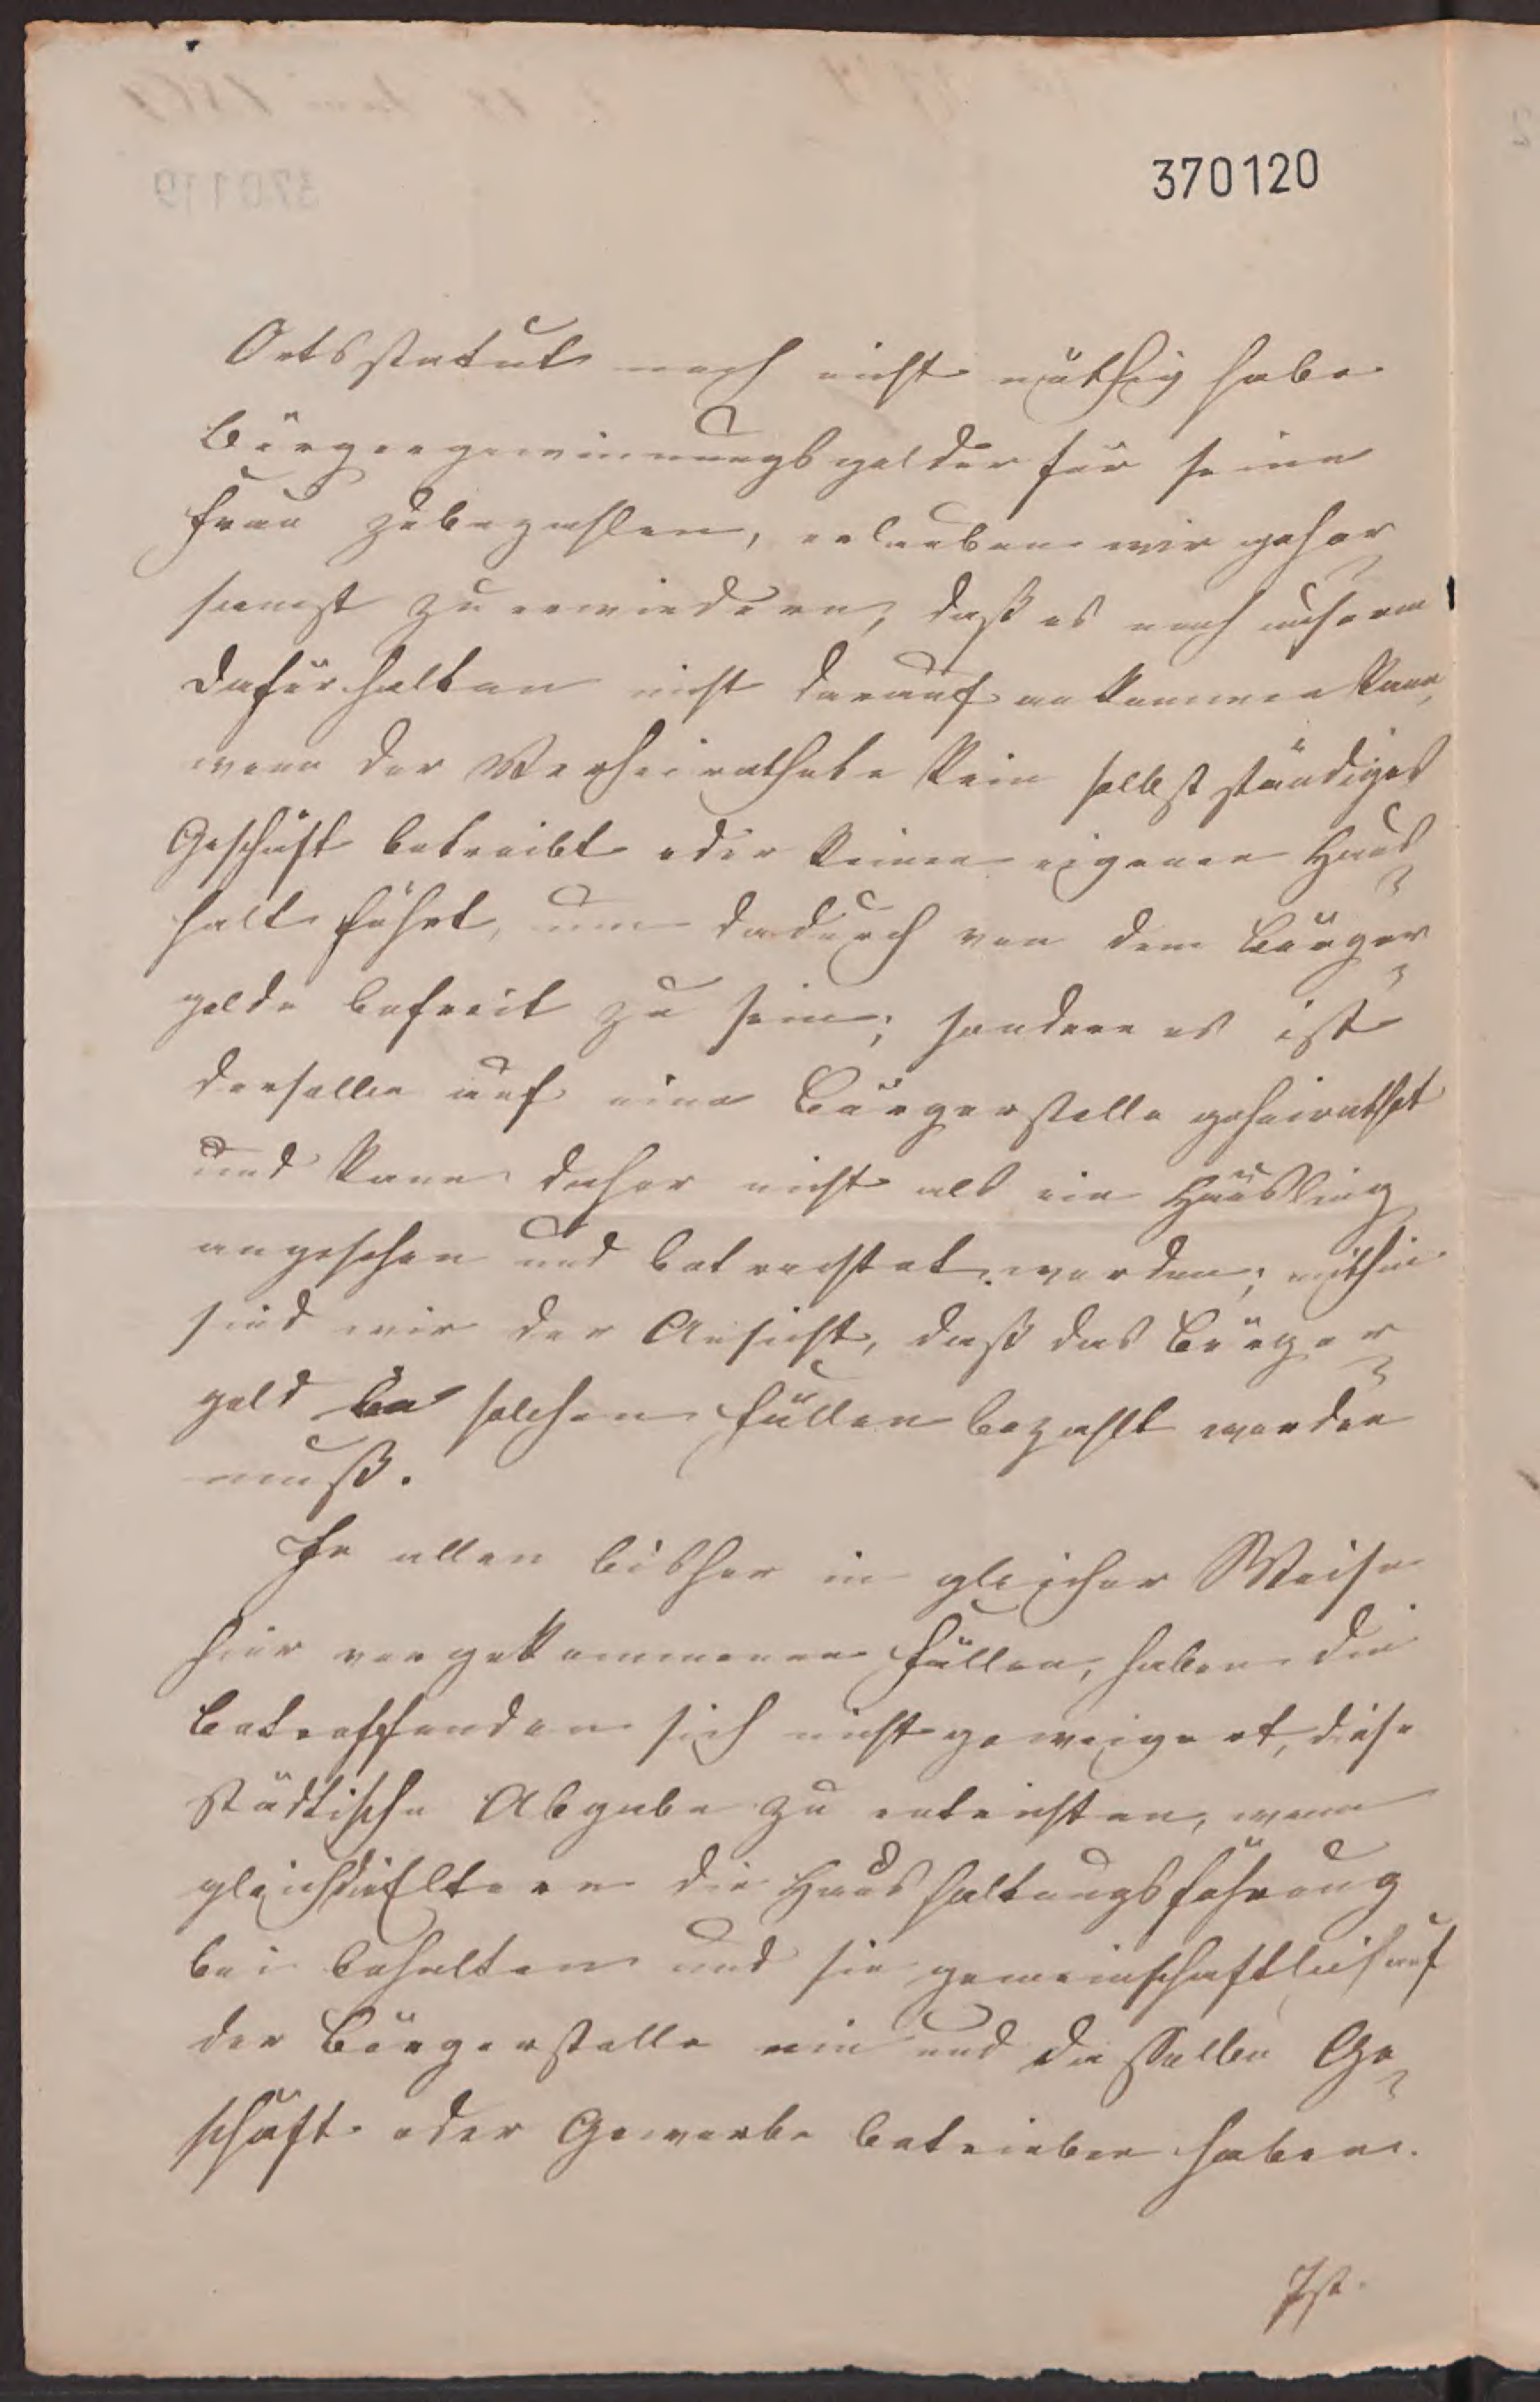 370120
Ortsstatut noch nicht nöthig habe
Bürgergewinnungsgelder für seine
Frau zubezahlen, erlauben wir gehor
samst zu erwiedern, daß es nach unserm
Dafürhalten nicht darauf ankommen kann,
wenn der Verheirathete kein selbstständiges
Geschäft betreibt oder keinen eigenen Haus
halt führt, um dadurch von dem Bürger
gelde befreit zu sein; sondern es ist
derselbe auf eine Bürgerstelle geheirathet
und kann daher nicht als ein Häusling
angesehen und betrachtet werden; mithin
sind wir der Ansicht, daß das Bürger
geld in solchen Fällen bezahlt werden
muß.
In allen bisher in gleicher Weise
hier vorgekommenen Fällen, haben die
Betreffenden sich nicht geweigert, diese
städtische Abgabe zu entrichten, wenn
gleich die Eltern die Haushaltungsführung
bei behalten und sie gemeinschaftlich auf
der Bürgerstelle ein und dasselbe Ge
schäft oder Gewerbe betrieben haben.
Ist